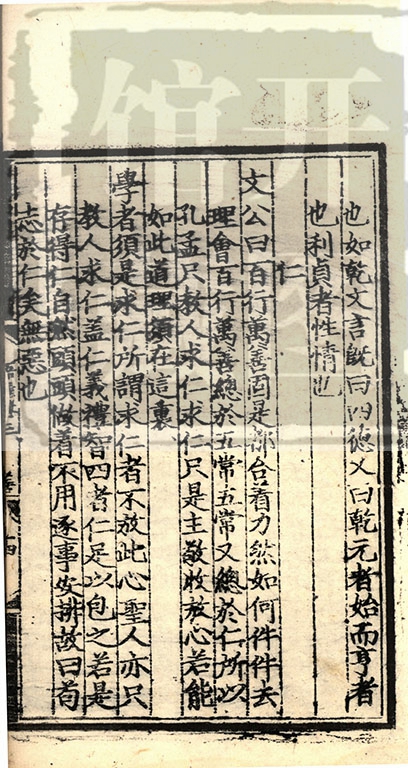 也如乾文言既曰四德又曰乾元者始而亨者
也利貞者性情也
仁
文公曰百行萬善固是都合着力然如何件件去
理會百行萬善總於五常五常又總於仁所以
孔孟只教人求仁求仁只是主敬收放心若能
如此道理須在這裏
學者須是求仁所謂求仁者不放此心聖人亦只
教人求仁盖仁義禮智四者仁足以包之若是
存得仁自然頭頭做着不用逐事安排故曰苟
志於仁矣無惡也
開
館